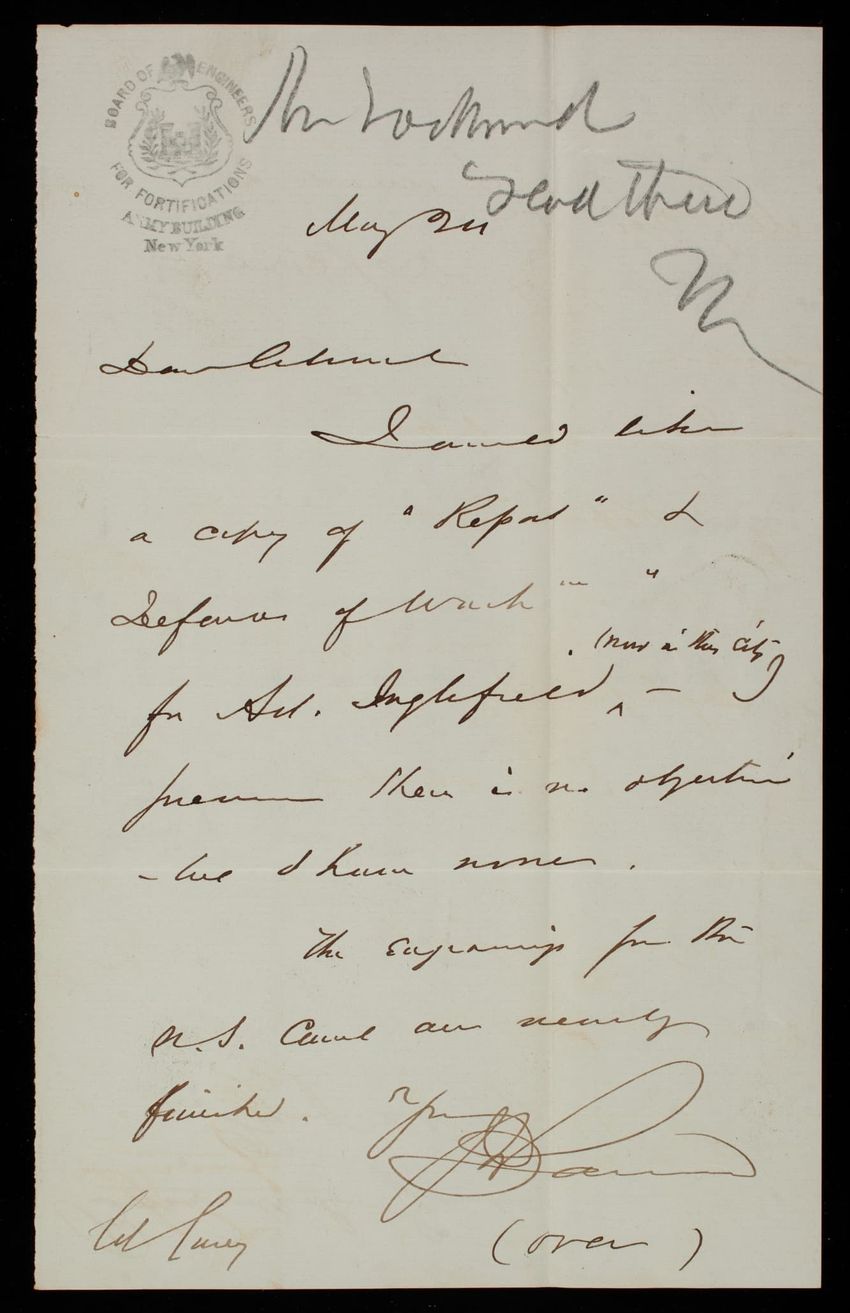 BOARD OF ENGINEERS
FOR FORTIFICATIONS
ARMY BUILDING
New York
Mr Lockwood
Send these
May
Dear Colonel
I would like
a copy of "Report" &
Defenses of Wash "
(now in this city)
for Ad. Inglefield, —
presume there is no objection
- we know none.
The engravings for the
N.S. Canal are nearly
finished. Yrs
Col Casey
(over)